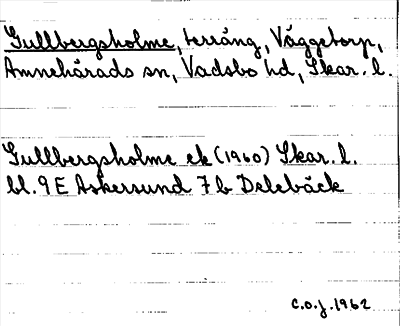 Gullbergsholme, terräng, Väggetorp,
Amnehärads sn, Vadsbo hd, Skar. l.
Gullbergsholme ek (1960) Skar. l.
bl. 9 E Askersund 7 b Delebäck
C.O.J. 1962